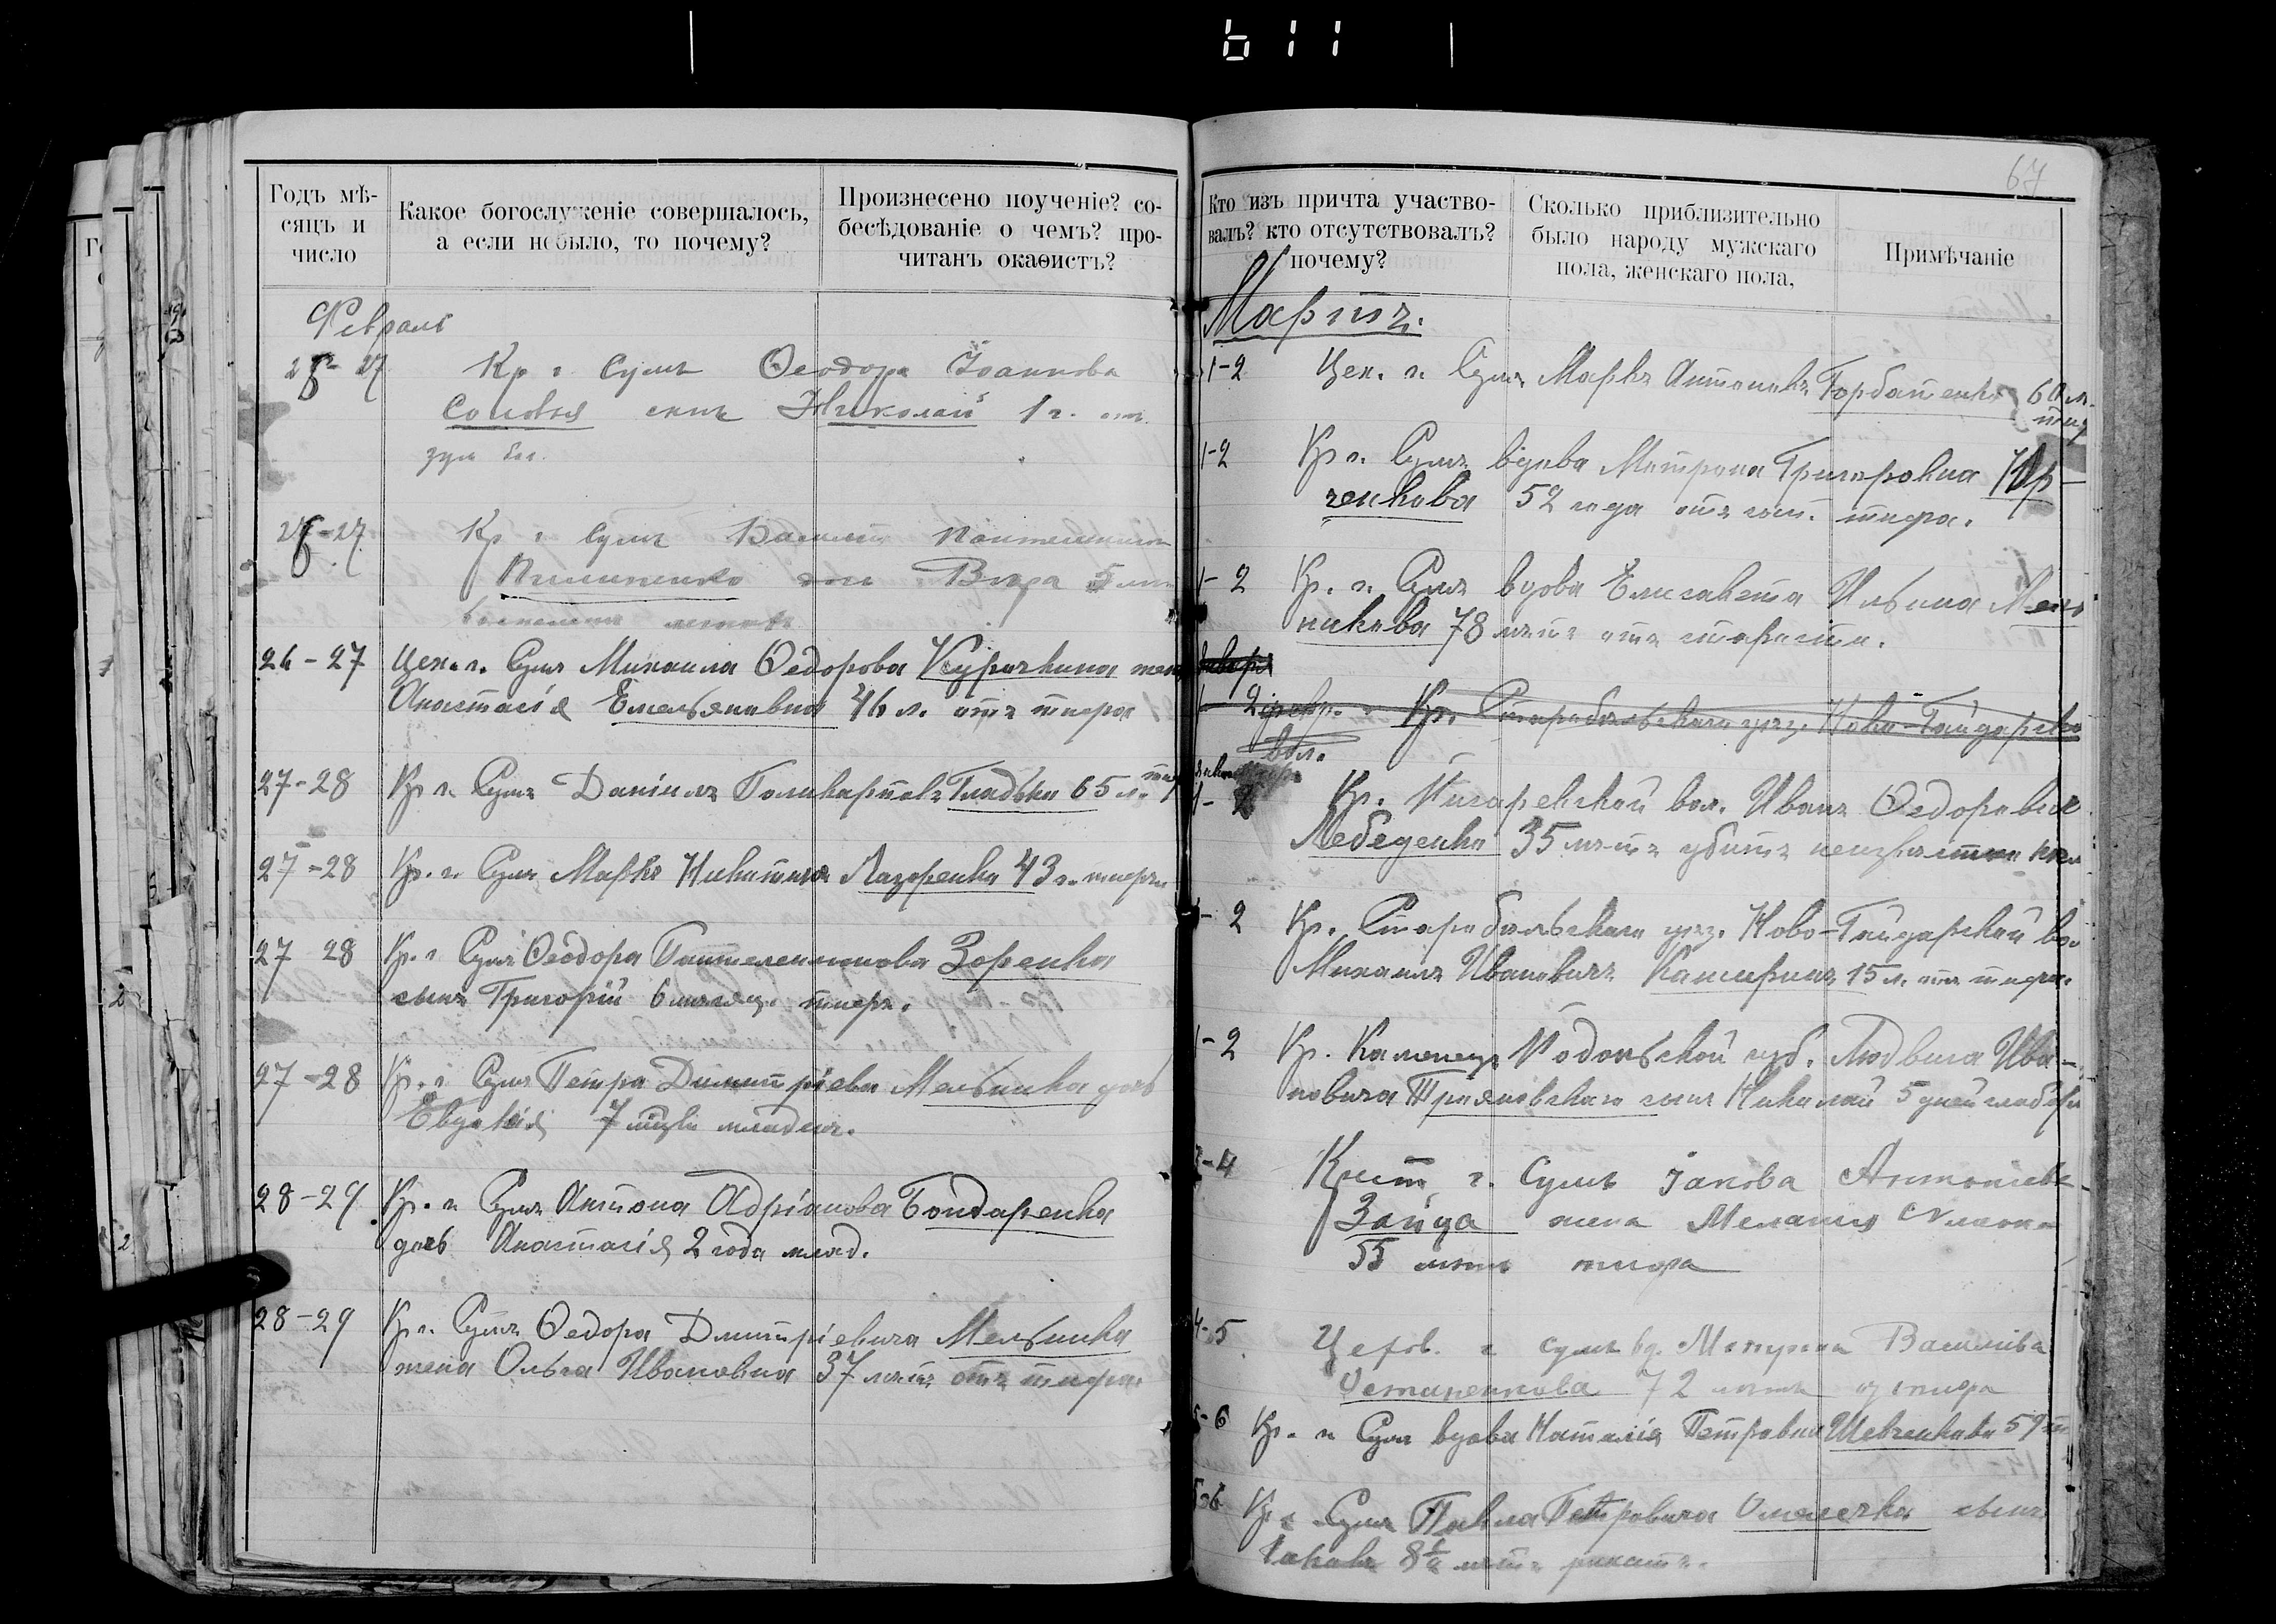 611
67
Годъ мѣ-
сяцъ и
число
Какое богослуженіе совершалось,
а если небыло, то почему?
Произнесено поученіе? со-
бесѣдованіе о чемъ? про-
читанъ окаѳистъ?
Февраль
27 Кр г Сумъ Ѳеодора Іоаннова
Соловья сынъ Николай 1 г. отъ
27 Кр г Сумъ
дочь Вѣра 5 лѣтъ
26-27 Цех. г. Сумъ Михаила Ѳедорова Курочкина жена
Анастасія Емельяновна 46 л. отъ тифа
27-28 Кр г. Сумъ Даніилъ Поликарповъ Гладько 65 л. тиф
27-28 Кр. г. Сумъ Марко Никитинъ Лазоренко 43 г. тифъ
27 28 Кр. г Сумъ Ѳеодора Пантелеимонова Зоренка
сынъ Григорій 6 мѣсяц. тифъ.
27-28 Кр. г Сумъ Петра Димитріева Мельника дочь
Евдокія 7 младен.
28-29 Кр. г. Сумъ Антона Адріанова Бондаренка
дочь Анастасія 2 года млад.
28-29 Кр г. Сумъ Ѳедора Дмитріевича Мельника
жена Ольга Ивановна 37 лѣтъ отъ тифа
Кто изъ причта участво-
валъ? кто отсутствовалъ?
почему?
Сколько приблизительно
было народу мужскаго
пола, женскаго пола,
Примѣчаніе
Мартъ.
1-2 Цех. г. Сумъ Маркъ Антоновъ Горбатенко 60 л.
тиф
1-2 Кр г. Сумъ вдова Матрона Григоровна Юр-
ченкова 52 года отъ тифа.
1-2 Кр. г. Сумъ вдова Елисавета Ильина Мель
никова 78 лѣтъ отъ старости.
Кр. Старобѣльскаго уѣз. Ново-Гайдарско
вол.
Кр. вол. Иванъ Ѳедоровъ
Лебеденко 35 лѣтъ убитъ неизвѣстно кѣм
1-2 Кр. Старобѣльскаго уѣз. Ново-Гайдарской во
Михаилъ Ивановичъ Каширинъ 15 л. отъ тифа.
1-2 Кр. Каменец Подольской губ. Людвига Ива-
новича сынъ Николай 5 дней слабор
3-4 г. Сумъ Іакова Антоніева
Зайца жена Меланія
55 лѣтъ тифа
4-5 Цехов. г Сумъ вд. Васильева
72 лѣтъ тифа
5-6 Кр. г. Сумъ вдова Наталія Петровна Шевченкова 59
5-6 Кр г Сумъ Павла Петровича Омелечка сынъ
Іаковъ 8 1/2 лѣтъ